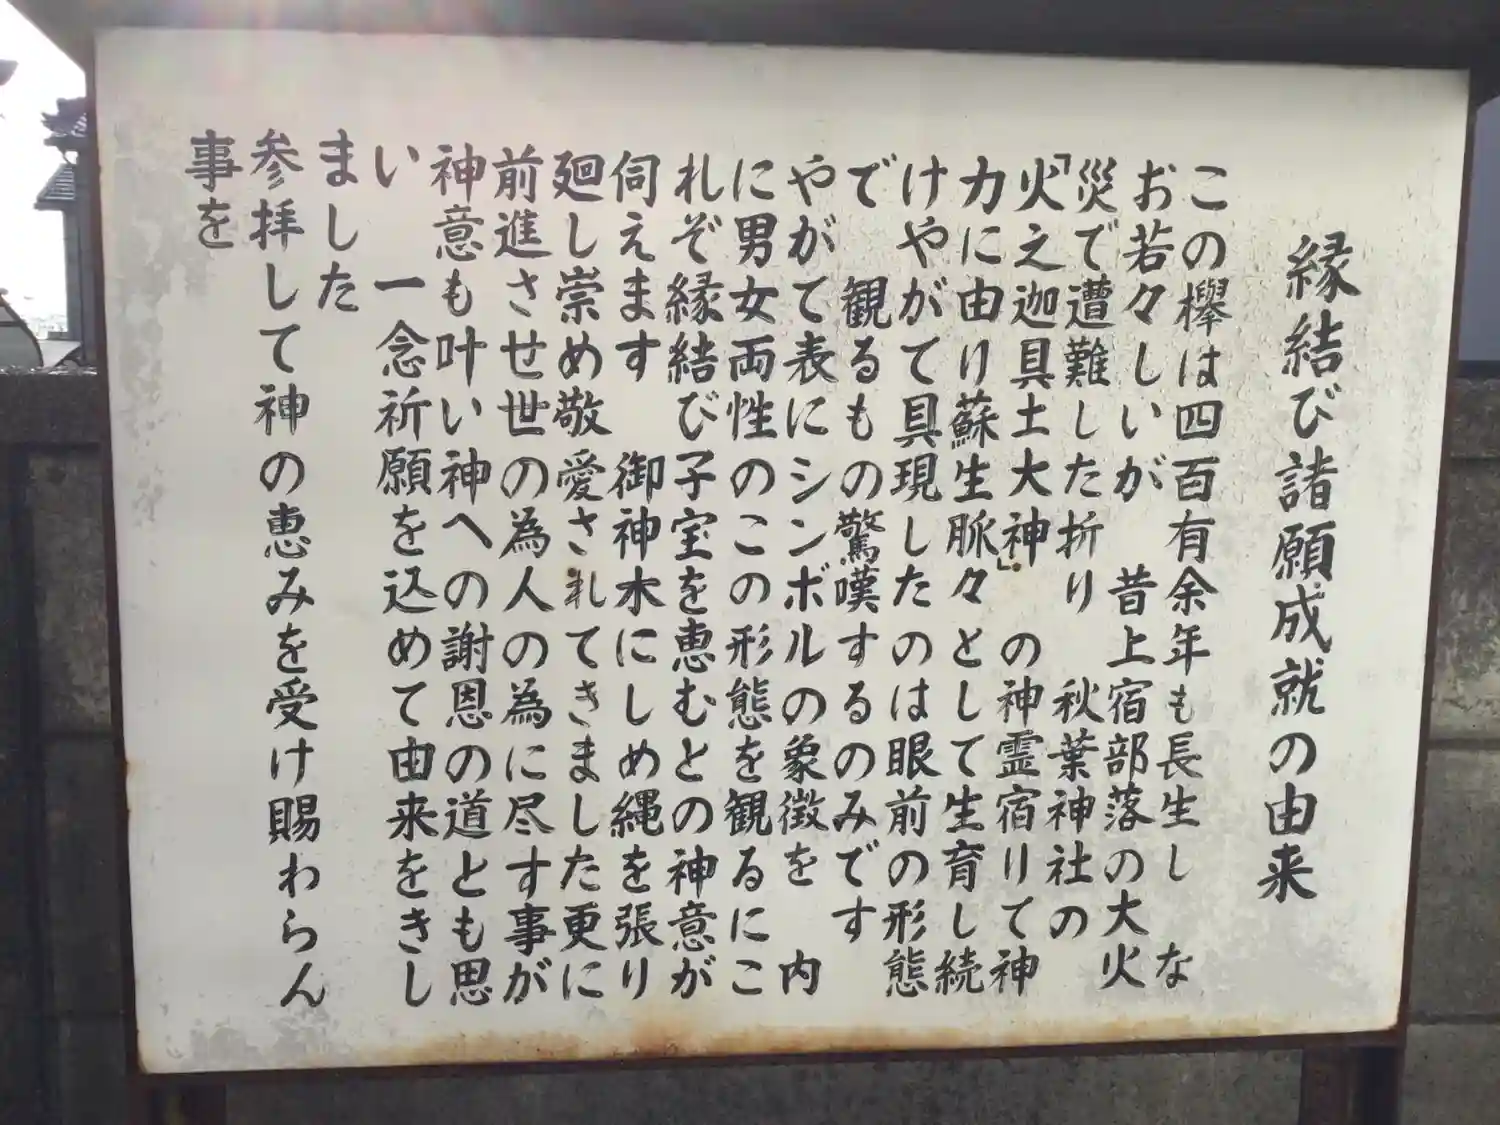 縁結び諸願成就の由来
この欅は四百有余年も長生し　な
お若々しいが　昔上宿部落の大火
災で遭難した折り　秋葉神社の
「火之迦具土大神」の神霊宿りて神
力に由り蘇生脈々として生育し続
けやがて具現したのは眼前の形態
で　観るもの驚嘆するのみです
やがて表にシンボルの象徴を　内
に男女両性のこの形態を観るにこ
れぞ縁結び子宝を恵むとの神意が
伺えます　御神木にしめ縄を張り
廻し崇め敬愛されてきました更に
前進させ世の為人の為に尽す事が
神意も叶い神への謝恩の道とも思
い　一念祈願を込めて由来をきし
ました
参拝して神の恵みを受け賜わらん
事を